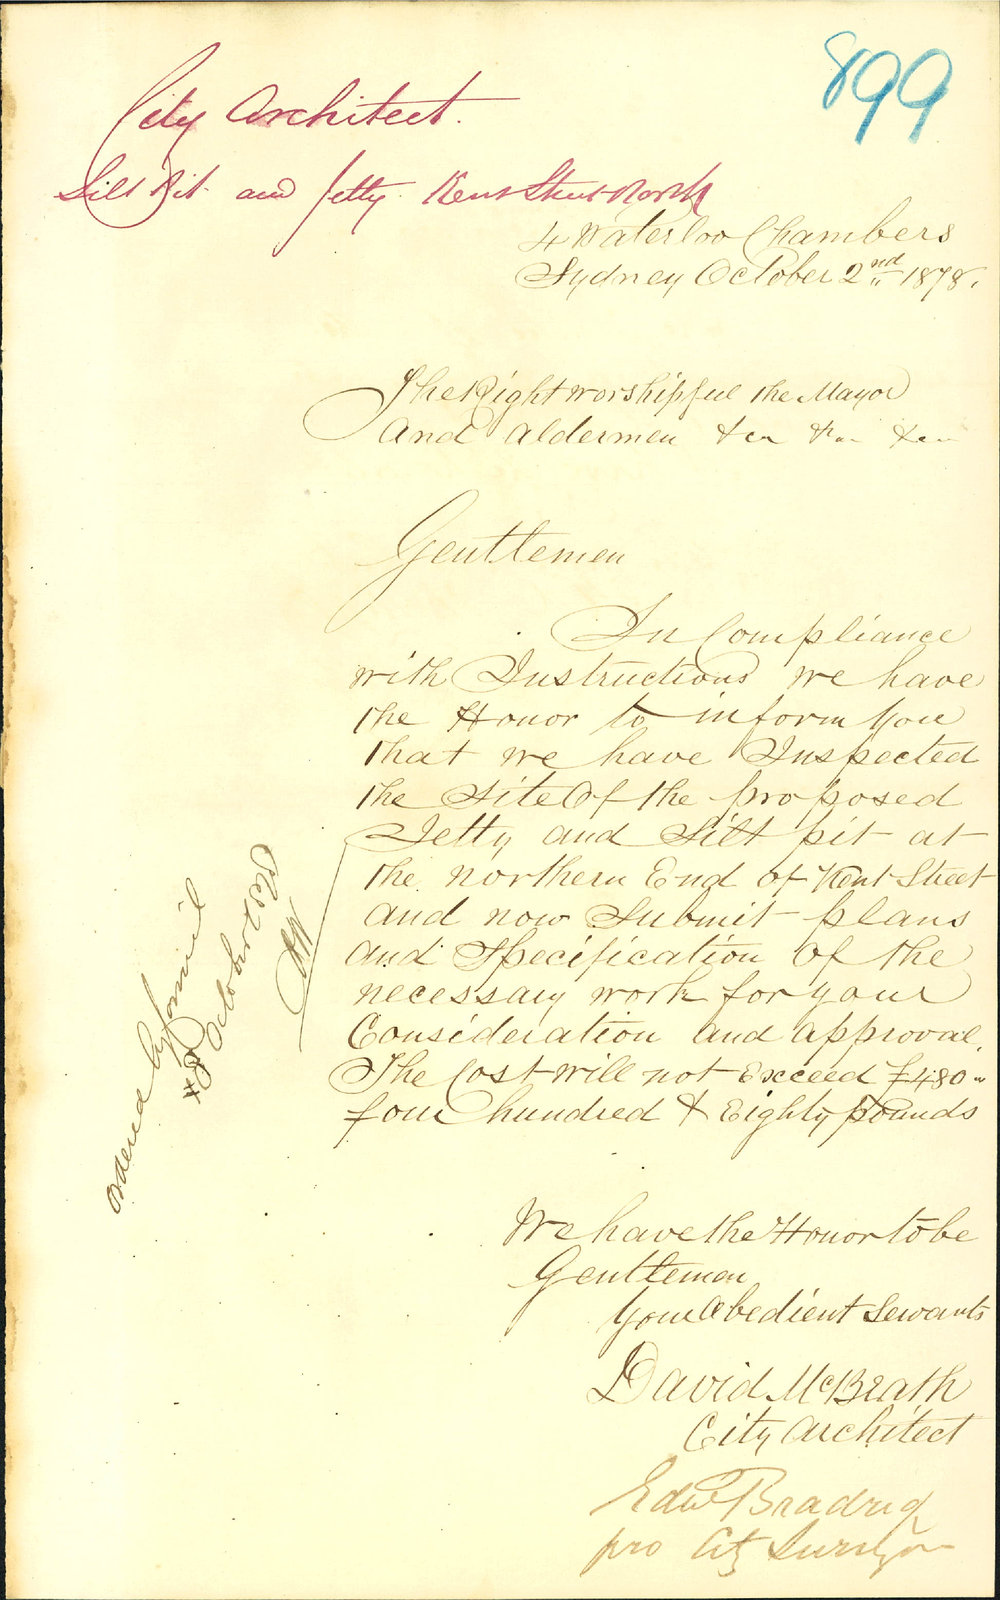 899
City Architect.
Silt Pit and Jetty Kent Street North
4 Waterloo Chambers
Sydney October 2nd 1878.
The Right worshipful the Mayor
And Aldermen &c &c &c
Gentlemen
In Compliance
with Instructions we have
the Honor to inform you
that we have Inspected
the Site Of the proposed
Jetty and Silt pit at
the northern End of Kent Street
and now Submit plans
and Specification Of the
necessary work for your
Consideration and approval.
The Cost will not Exceed £480"
four hundred & Eighty pounds
We have the Honor to be
Gentlemen
Your Obedient Servants
David McBeath
City Architect
Edwd Bradridge
pro City Surveyor
Ordered by Council
October 1878